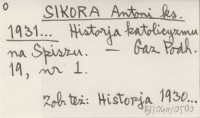 o
SIKORA Antoni ks.
1931... Historja katolicyzmu
na Spiszu. — Gaz Podh.
19, nr 1.
Zob. też: Historja 1930...